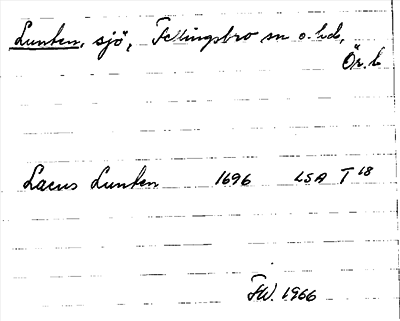 Lunten, sjö, Fellingsbro sn o. hd,
Ör. l
Lacus Lunten 1696 LSA T 18
FW. 1966